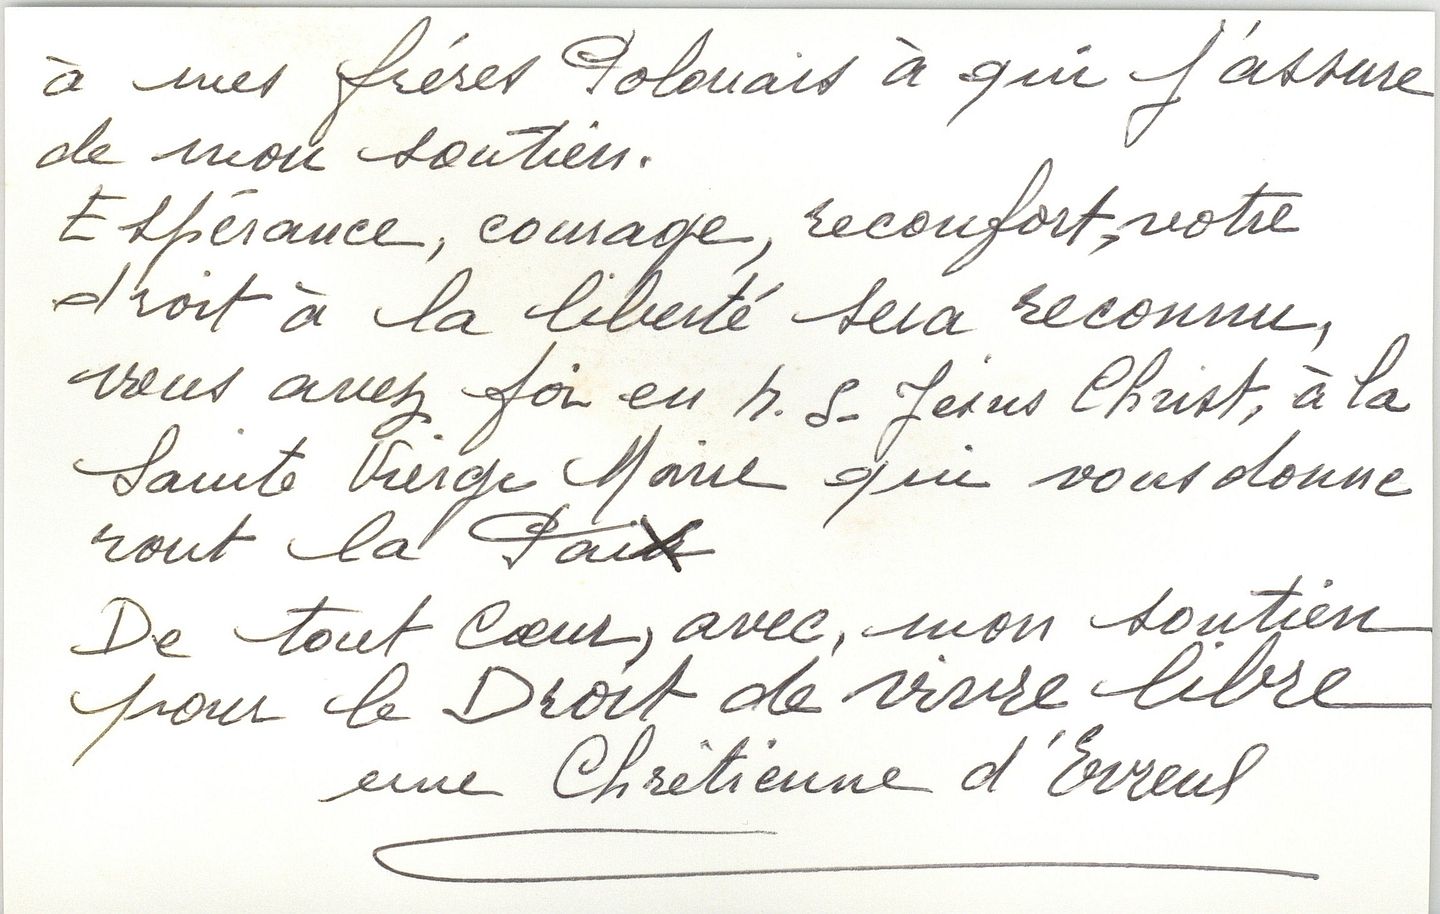 à mes fréres Polonais à qui j'assure
de mon soutien.
Espérance, courage, reconfort, votre
droit à la liberté sera reconnu,
vous avez foi en N. S. Jesus Christ, à la
Sainte Vierge Marie qui vous donne
ront la Paix
De tout Cœur, avec, mon soutien
pour le Droit de vivre libre
une Chrétienne d'Evreux